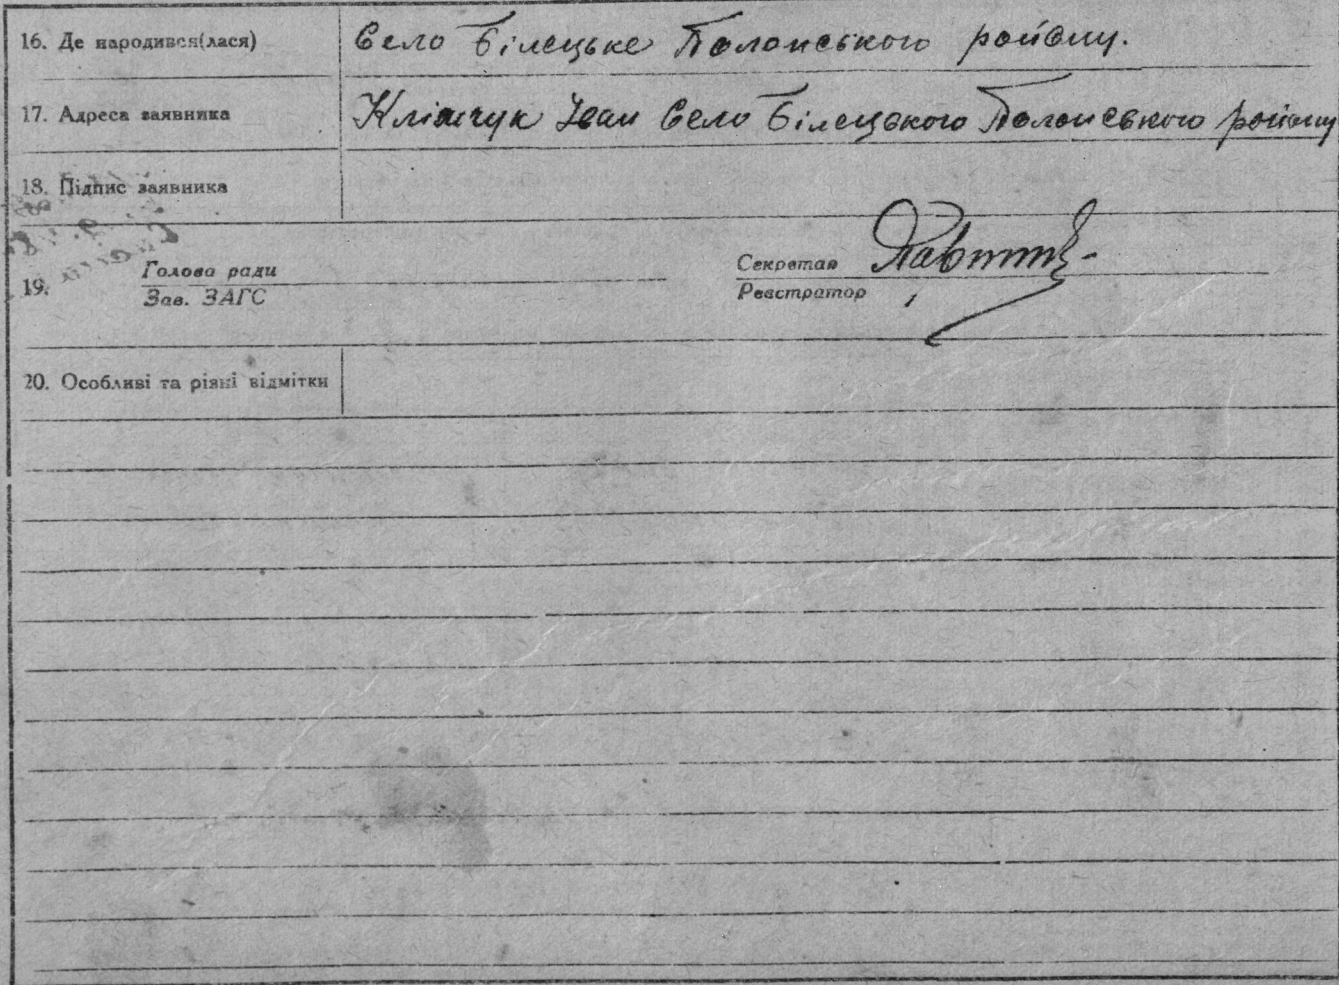 16. Де народився(лася) Село Білецьке Полонського району.
17. Адреса заявника Клімчук Іван Село Білецького Полонського району
18. Підпис заявника
19. Голова ради Секретар
Зав. ЗАГС Реєстратор
20. Особливі та різні відмітки